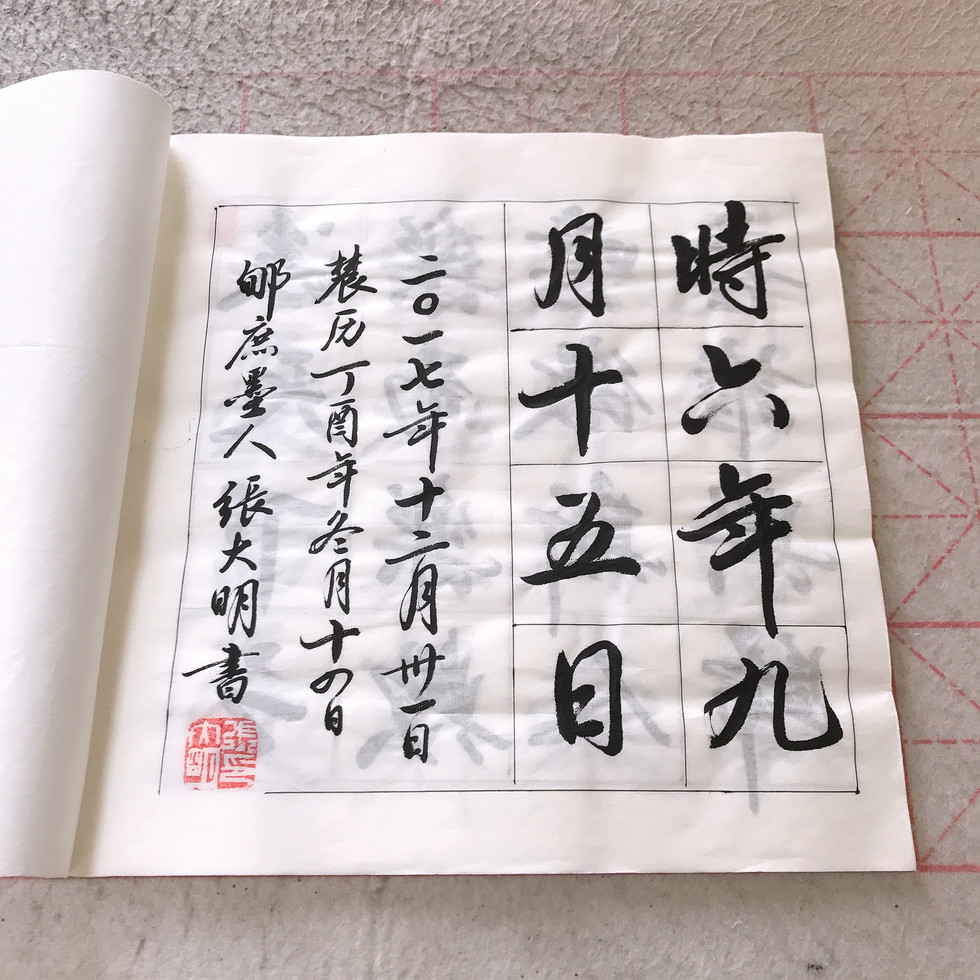 時六年九
月十五日
二〇一七年十二月卅一日
農历丁酉年冬月十四日
邮庶墨人張大明書
張印
大明